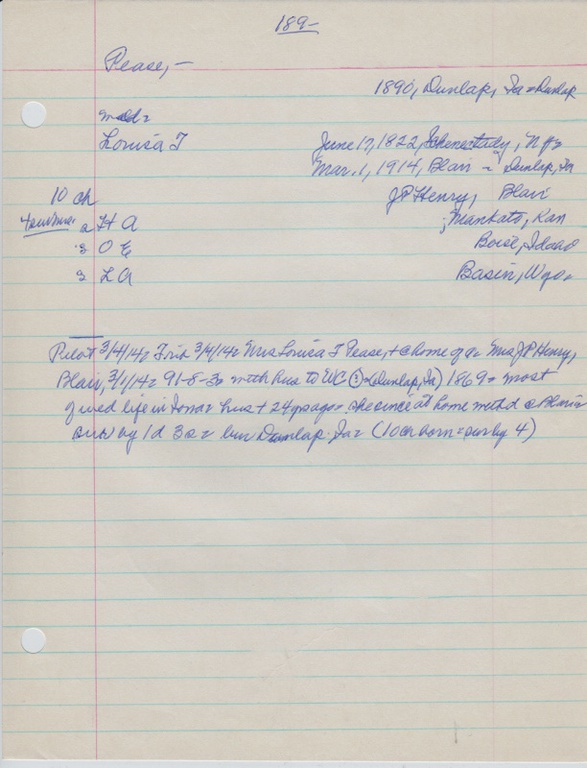 189-
Pease,-
1890, Dunlap, Ia = Dunlap
md =
Louisa T June 17, 1822, Schenectady, N Y =
Mar. 1, 1914, Blair = Dunlap, Ia
10 ch J P Henry, Blair
4 survive a H A ; Mankato, Kan
s O E Boise, Idaho
s L A Basin, Wyo =
Pilot 3/4/14 = Trib 3/4/14 = Mrs Louisa T Pease, + @ home of d = Mrs J P Henry,
Blair, 3/1/14 = 91-8- with hus to WC (Dunlap, Ia) 1869 = most
of wed life in Iowa = hus + 24 yrs ago = she since at home md d @ Blair =
surv by 1 d 3 s = bur Dunlap. Ia = (10 ch born = surv by 4)